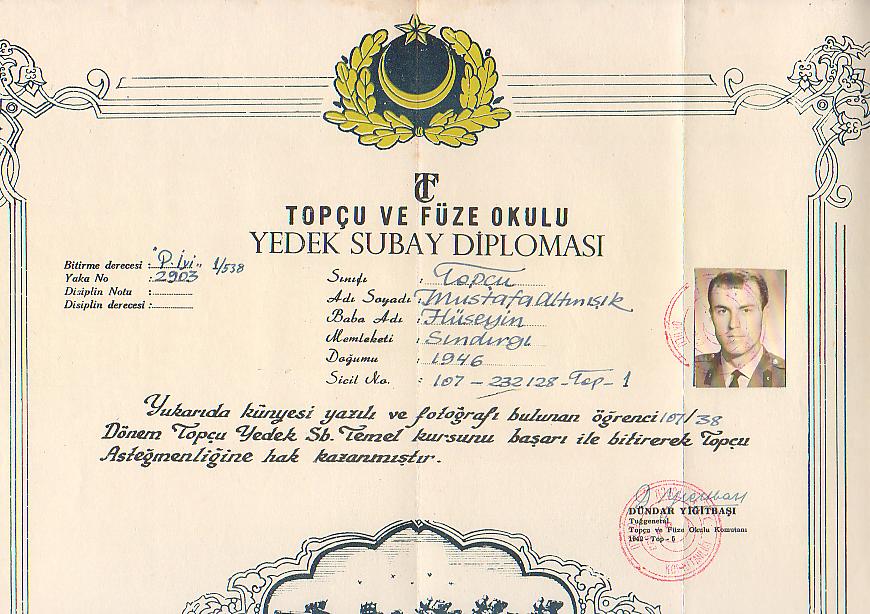 TC
TOPÇU VE FÜZE OKULU
YEDEK SUBAY DİPLOMASI
Bitirme derecesi : "P. İyi" 1/538
Yaka No : 2903
Disiplin Notu :
Disiplin derecesi :
Sınıfı : Topçu
Adı Soyadı : Mustafa Altınışık
Baba Adı : Hüseyin
Memleketi : Sındırgı
Doğumu : 1946
Sicil No. : 107-232128-Top-1
Yukarıda künyesi yazılı ve fotoğrafı bulunan öğrenci 107/38
Dönem Topçu Yedek Sb. Temel kursunu başarı ile bitirerek Topçu
Asteğmenliğine hak kazanmıştır.
DÜNDAR YİĞİTBAŞI
Tuğgeneral
Topçu ve Füze Okulu Komutanı